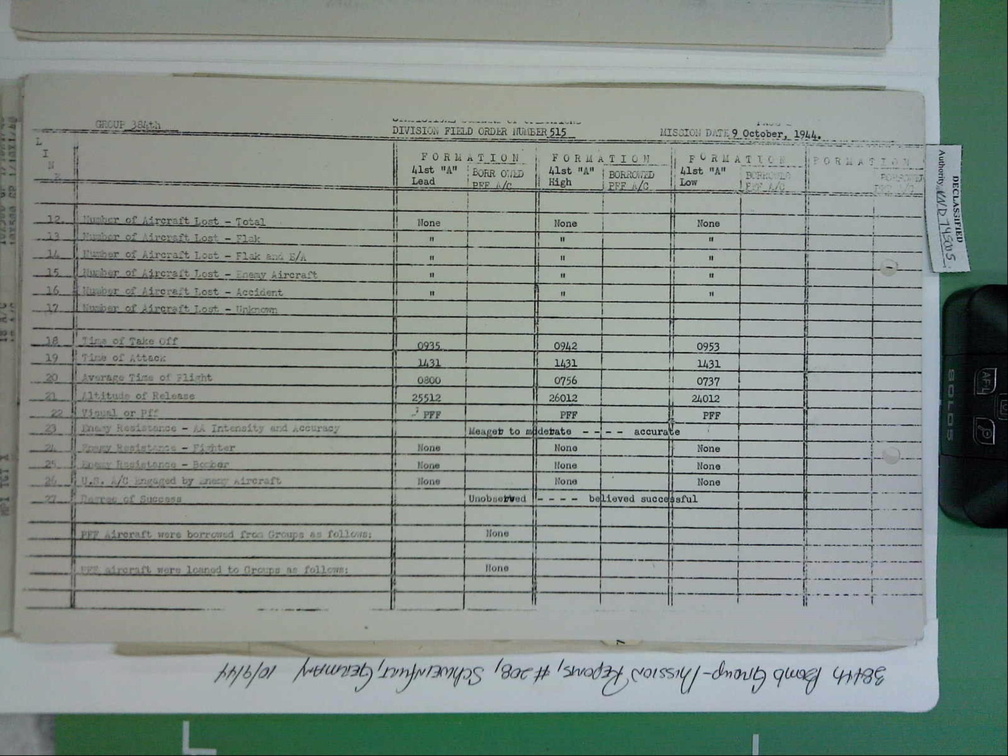 GROUP 384th DIVISION FIELD ORDER NUMBER 515 MISSION DATE 9 October, 1944.
L I N E
FORMATION FORMATION FORMATION FORMATION
41st "A" Lead BORROWED PFF A/C 41st "A" High BORROWED PFF A/C 41st "A" Low BORROWED PFF A/C
12 Number of Aircraft Lost - Total None None None
13 Number of Aircraft Lost - Flak " " "
14 Number of Aircraft Lost - Flak and E/A " " "
15 Number of Aircraft Lost - Enemy Aircraft " " "
16 Number of Aircraft Lost - Accident " " "
17 Number of Aircraft Lost - Unknown
18 Time of Take Off 0935 0942 0953
19 Time of Attack 1431 1431 1431
20 Average Time of Flight 0800 0756 0737
21 Altitude of Release 25512 26012 24012
22 Visual or Pff PFF PFF PFF
23 Enemy Resistance - AA Intensity and Accuracy Meager to moderate - - - - accurate
24 Enemy Resistance - Fighter None None None
25 Enemy Resistance - Bomber None None None
26 U.S. A/C Engaged by Enemy Aircraft None None None
27 Degree of Success Unobserved - - - - believed successful
PFF Aircraft were borrowed from Groups as follows: None
PFF aircraft were loaned to Groups as follows: None
DECLASSIFIED
Authority NND 745015
384th Bomb Group - Mission Reports, #208, Schweinfurt, Germany 10/9/44
AF
P